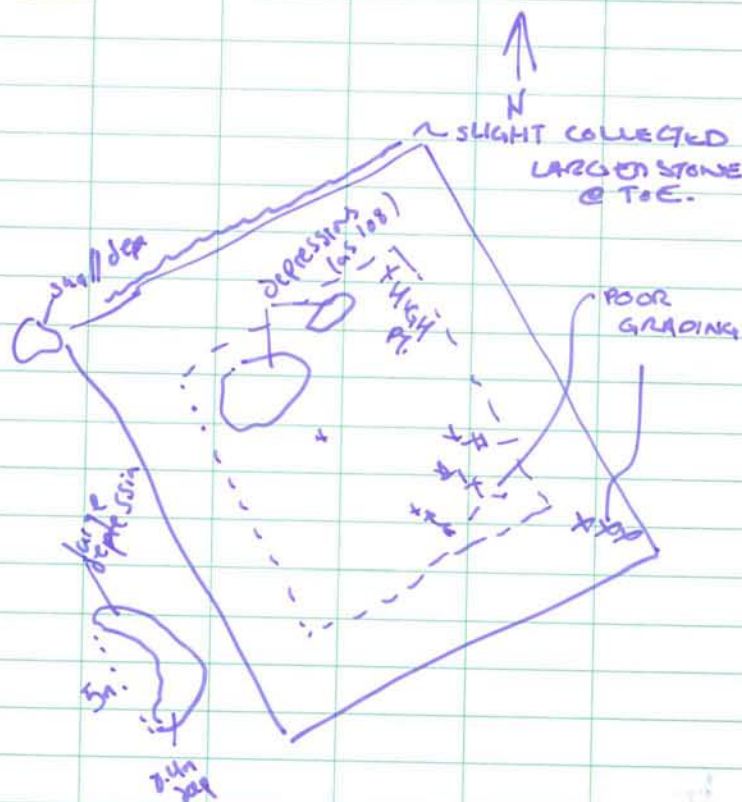 N
~ SLIGHT COLLECTED
LARGER STONE
@ TOE.
small dep
depressions
(as 108)
+ HIGH
Pt.
POOR
GRADING
large
depression
5m.
0.4m
dep